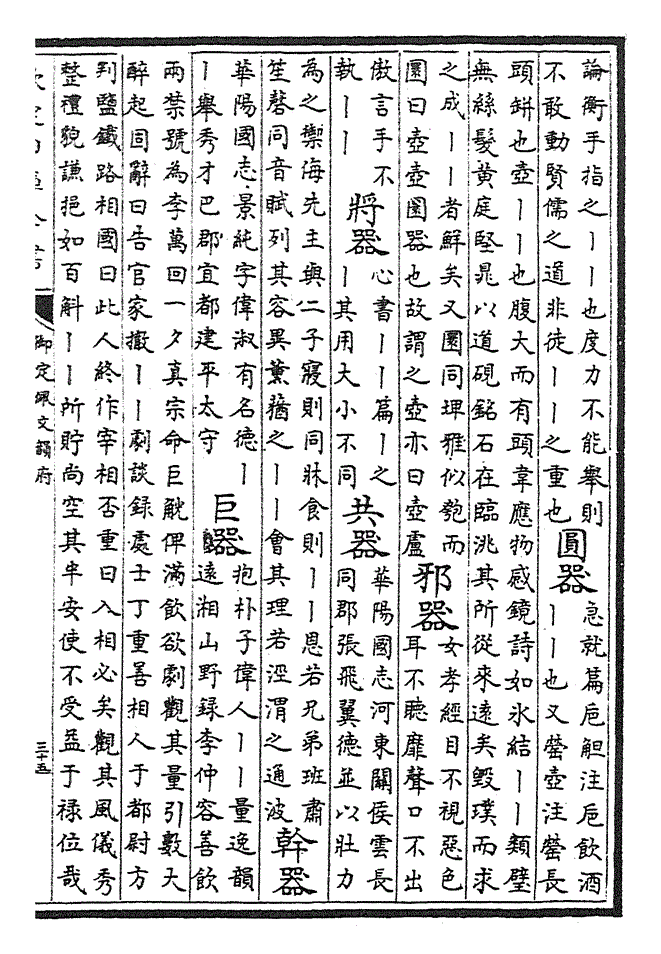 論衡手指之丨丨也度力不能舉則
不敢動賢儒之道非徒丨丨之重也
圓器
急就篇巵觛注巵飲酒
丨丨也又罃壺注罃長
頭缾也壺丨丨也腹大而有頭韋應物感鏡詩如氷結丨丨類璧
無絲髮黄庭堅晁以道硯銘石在臨洮其所從來遠矣毀璞而求
之成丨丨者鮮矣又圜同埤雅似匏而
圜曰壺壺圜器也故謂之壺亦曰壺盧
邪器
女孝經目不視惡色
耳不聽靡聲口不出
傲言手不
執丨丨
將器
心書丨丨篇丨之
丨其用大小不同
共器
華陽國志河東關侯雲長
同郡張飛翼德並以壯力
為之禦侮先主與二子寢則同牀食則丨丨恩若兄弟班肅
笙磬同音賦列其容異薰蕕之丨丨會其理若涇渭之通波
幹器
華陽國志景純字偉淑有名德丨
丨舉秀才巴郡宜都建平太守
巨器
抱朴子偉人丨丨量逸韻
遠湘山野録李仲容善飲
兩禁號為李萬回一夕真宗命巨觥俾滿飲欲劇觀其量引數大
醉起固辭曰告官家撤丨丨劇談録處士丁重善相人于都尉方
到鹽鐵路相國曰此人終作宰相否重曰入相必矣觀其風儀秀
整禮貌謙挹如百斛丨丨所貯尚空其半安使不受益于禄位哉
御定佩文韻府
三十五